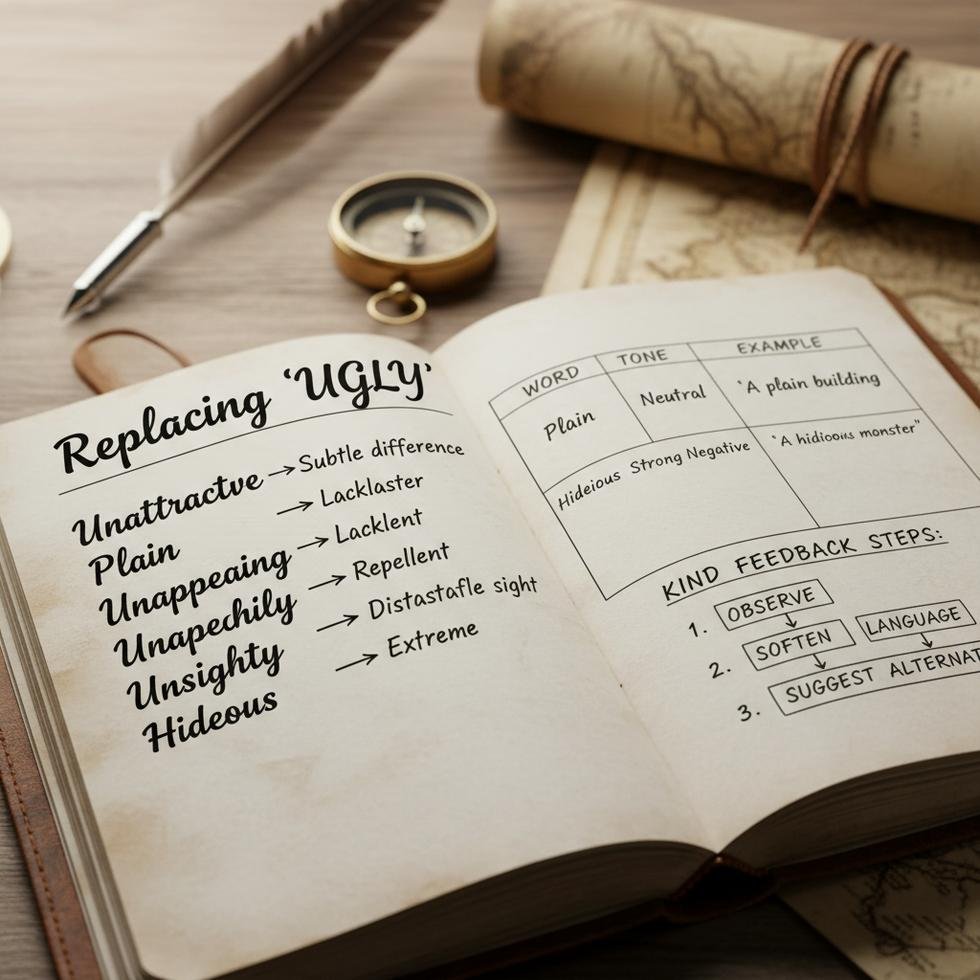 Replacing 'UGLY'
Unattractve → Subtle difference
Plain → Lacklaster
Unappeaing → Lacklent
Unapechily → Repellent
Unsighty → Distastafle sight
Hideous → Extreme
WORD TONE EXAMPLE
Plain Neutral "A plain building
Hideious Strong Negative "A hidioous monster"
KIND FEEDBACK STEPS:
1. OBSERVE
2. SOFTEN LANGUAGE
3. SUGGEST ALTERNAT